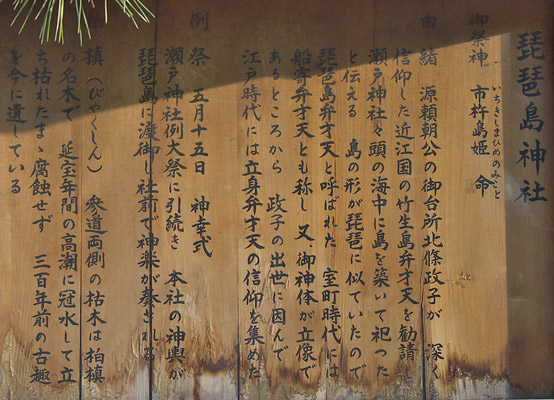 琵琶島神社
御祭神 市杵島姫 命
いちきしまひめのみこと
由緒 源頼朝公の御台所北條政子が 深く
信仰した近江国の竹生島弁才天を勧請し
瀬戸神社々頭の海中に島を築いて祀った
と伝える 島の形が琵琶に似ていたので
琵琶島弁才天と呼ばれた 室町時代には
船寄弁才天とも称し 又、御神体が立像で
あるところから 政子の出世に因んで
江戸時代には立身弁才天の信仰を集めた
例 祭 五月十五日 神幸式
瀬戸神社例大祭に引続き 本社の神輿が
琵琶島に渡御し社前で神楽が奏される
枯 槙(びゃくしん) 参道両側の枯木は柏槙
の名木で 延宝年間の高潮に冠水して立
ち枯れたまゝ腐蝕せず 三百年前の古趣
を今に遺している